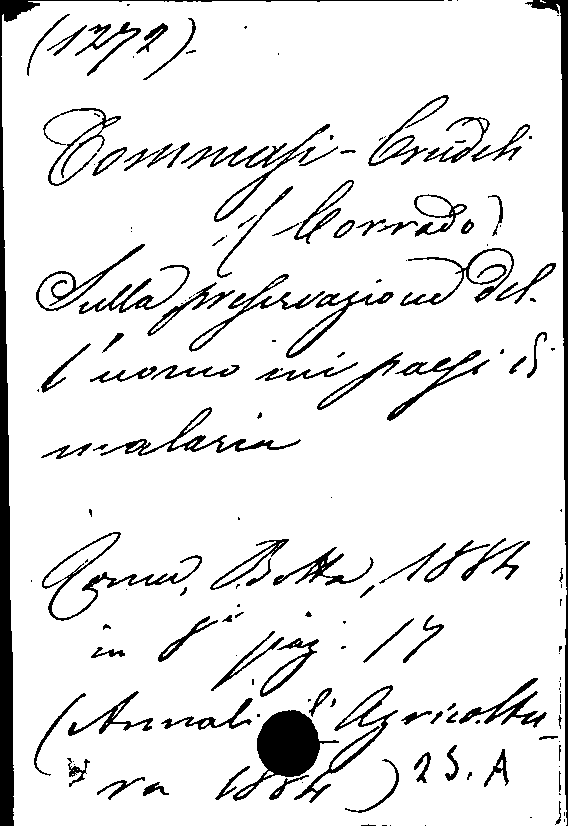 (1272)
Tommasi-Crudeli
(Corrado)
Sulla preservazione del-
l'uomo nei paesi di
malaria
Roma, Botta, 1884
in 8° pag. 17
(Annali d'Agricoltu-
ra 1884) 25. A